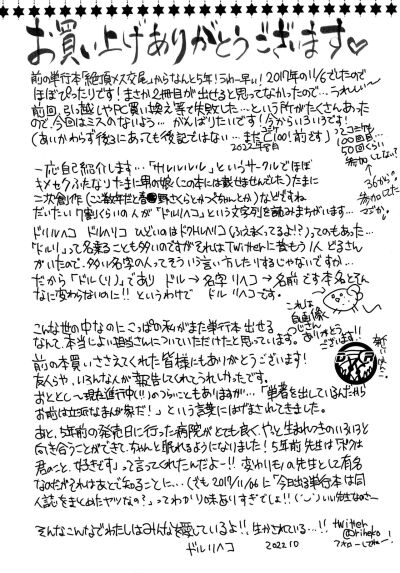 お買い上げありがとうございます♡
前の単行本「絶頂メス交尾」からなんと5年!うわー早い!2017年の11/6でしたので
ほぼぴったりです!まさか2冊目が出せると思ってなかったので…うれしい〜
前回、引っ越しやPC買い換え等で失敗した…という所がたくさんあった
ので、今回はミスのないよう… がんばりたいです!今からいろいろです!
(あいかわらず後ろにあっても後記ではない…まだC100!前です)
2022年8月
コミケ
100回目…
50回くらい
参加してない?
36から
参加してた
マジか。
一応自己紹介します…「サルルルルル」というサークルでほぼ
キメセクふたなりたまに男の娘(この本には載せませんでした)たまに
二次創作(ここ数年だと さくらとかっちゃんとか)などですね
だいたい7割くらいの人が「ドルリヘコ」という文字列を読みまちがいます…
ドルリルヘコ ドルベリコ ひどいのはドクトルリコ(ふえまくってるよ!?)ってのもあった…
「ドルリ」って名乗ることも多いのですがそれはTwitterに昔もう1人どるさん
がいたので、多い名字の人ってそういう言い方したりするじゃないですか…
だから「ドル(リ)」であり ドル→名字 リヘコ→名前 です本名とそん
なに変わらないのに!! というわけで ドルリヘコ です。
これは
自画像
こんな世の中なのにこっぱの私がまた単行本出せる
なんて、本当によい担当さんについていただけたと思っています。
ありがとう
ございます!!
前の本買いささえてくれた皆様にもありがとうございます!
友人らや、いろんな人が報告してくれてうれしかったです。
おととし〜現在進行中(!!)のつらいこともありますが…「単著を出しているんだから
お前は立派なまんが家だ!」という言葉にはげまされてきました。
あと、5年前の発売日に行った病院がとても良く、やっと生まれつきのいろいろと
向き合うことができて、ちゃんと眠れるようになりました!5年前先生は「ボクは
君のこと、好きです」って言ってくれたんだよー!!変わりもの先生として有名
なのだがそれはあとで知ることに…(でも2017/11/06に「今日出る単行本は同
人誌をまとめたヤツなの?」ってわかり味ありすぎでしょ!!いい先生なのさー)
そんなこんなでわたしはみんなを愛しているよ!!生かされている…!!
ドルリヘコ 2022.10
twitter
@riheko
フォローしてねー!